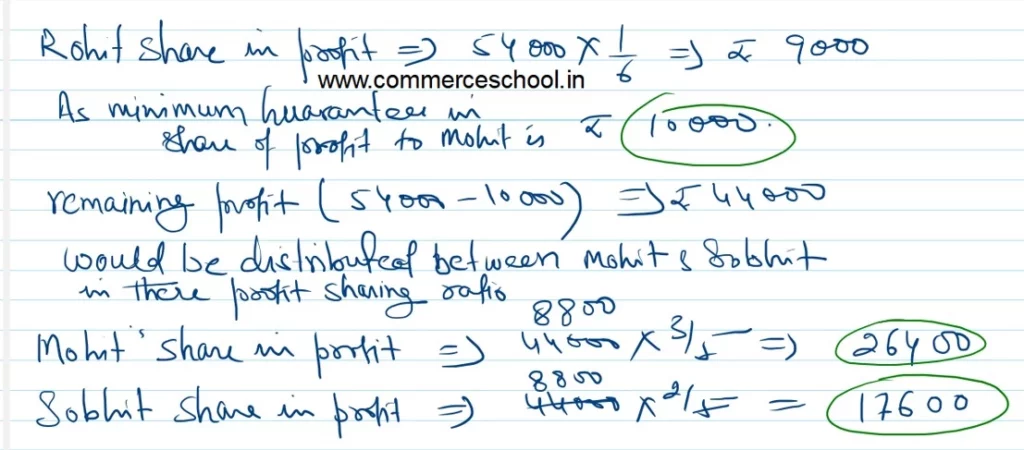 Rohit share in profit ⇒ 54000 × 1/6 ⇒ ₹ 9000
www.commerceschool.in
As minimum Guarantee in
share of profit to Mohit is ₹ 10000.
remaining profit (54000 - 10000) ⇒ ₹ 44000
would be distributed between Mohit & Sobhit
in there profit sharing ratio
8800
Mohit's share in profit ⇒ 44000 × 3/5 ⇒ 26400
8800
Sobhit share in profit ⇒ 44000 × 2/5 = 17600